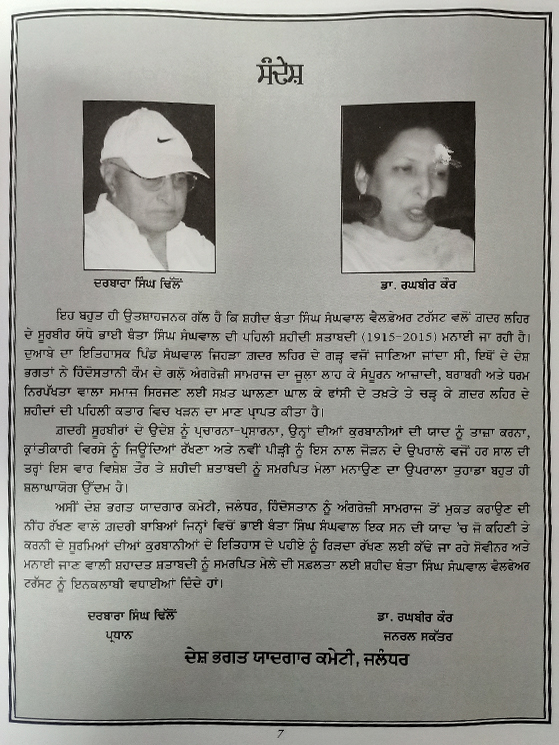 ਸੰਦੇਸ਼
ਦਰਬਾਰਾ ਸਿੰਘ ਢਿੱਲੋਂ
ਡਾ. ਰਘਬੀਰ ਕੌਰ
ਇਹ ਬਹੁਤ ਹੀ ਉਤਸ਼ਾਹਜਨਕ ਗੱਲ ਹੈ ਕਿ ਸ਼ਹੀਦ ਬੰਤਾ ਸਿੰਘ ਸੰਘਵਾਲ ਵੈਲਫੇਅਰ ਟਰੱਸਟ ਵਲੋਂ ਗ਼ਦਰ ਲਹਿਰ
ਦੇ ਸੂਰਬੀਰ ਯੋਧੇ ਭਾਈ ਬੰਤਾ ਸਿੰਘ ਸੰਘਵਾਲ ਦੀ ਪਹਿਲੀ ਸ਼ਹੀਦੀ ਸ਼ਤਾਬਦੀ (1915-2015) ਮਨਾਈ ਜਾ ਰਹੀ ਹੈ।
ਦੁਆਬੇ ਦਾ ਇਤਿਹਾਸਕ ਪਿੰਡ ਸੰਘਵਾਲ ਜਿਹੜਾ ਗ਼ਦਰ ਲਹਿਰ ਦੇ ਗੜ੍ਹ ਵਜੋਂ ਜਾਣਿਆ ਜਾਂਦਾ ਸੀ, ਇਥੋਂ ਦੇ ਦੇਸ਼
ਭਗਤਾਂ ਨੇ ਹਿੰਦੋਸਤਾਨੀ ਕੌਮ ਦੇ ਗਲੋਂ ਅੰਗਰੇਜ਼ੀ ਸਾਮਰਾਜ ਦਾ ਜੂਲਾ ਲਾਹ ਕੇ ਸੰਪੂਰਨ ਆਜ਼ਾਦੀ, ਬਰਾਬਰੀ ਅਤੇ ਧਰਮ
ਨਿਰਪੱਖਤਾ ਵਾਲਾ ਸਮਾਜ ਸਿਰਜਣ ਲਈ ਸਖ਼ਤ ਘਾਲਣਾ ਘਾਲ ਕੇ ਫਾਂਸੀ ਦੇ ਤਖ਼ਤੇ ਤੇ ਚੜ੍ਹ ਕੇ ਗ਼ਦਰ ਲਹਿਰ ਦੇ
ਸ਼ਹੀਦਾਂ ਦੀ ਪਹਿਲੀ ਕਤਾਰ ਵਿਚ ਖੜਨ ਦਾ ਮਾਣ ਪ੍ਰਾਪਤ ਕੀਤਾ ਹੈ।
ਗ਼ਦਰੀ ਸੂਰਬੀਰਾਂ ਦੇ ਉਦੇਸ਼ ਨੂੰ ਪ੍ਰਚਾਰਨਾ-ਪ੍ਰਸਾਰਨਾ, ਉਨ੍ਹਾਂ ਦੀਆਂ ਕੁਰਬਾਨੀਆਂ ਦੀ ਯਾਦ ਨੂੰ ਤਾਜ਼ਾ ਕਰਨਾ,
ਕ੍ਰਾਂਤੀਕਾਰੀ ਵਿਰਸੇ ਨੂੰ ਜਿਊਂਦਿਆਂ ਰੱਖਣਾ ਅਤੇ ਨਵੀਂ ਪੀੜ੍ਹੀ ਨੂੰ ਇਸ ਨਾਲ ਜੋੜਨ ਦੇ ਉਪਰਾਲੇ ਵਜੋਂ ਹਰ ਸਾਲ ਦੀ
ਤਰ੍ਹਾਂ ਇਸ ਵਾਰ ਵਿਸ਼ੇਸ਼ ਤੌਰ ਤੇ ਸ਼ਹੀਦੀ ਸ਼ਤਾਬਦੀ ਨੂੰ ਸਮਰਪਿਤ ਮੇਲਾ ਮਨਾਉਣ ਦਾ ਉਪਰਾਲਾ ਤੁਹਾਡਾ ਬਹੁਤ ਹੀ
ਸ਼ਲਾਘਾਯੋਗ ਉੱਦਮ ਹੈ।
ਅਸੀਂ ਦੇਸ਼ ਭਗਤ ਯਾਦਗਾਰ ਕਮੇਟੀ, ਜਲੰਧਰ, ਹਿੰਦੋਸਤਾਨ ਨੂੰ ਅੰਗਰੇਜ਼ੀ ਸਾਮਰਾਜ ਤੋਂ ਮੁਕਤ ਕਰਾਉਣ ਦੀ
ਨੀਂਹ ਰੱਖਣ ਵਾਲੇ ਗ਼ਦਰੀ ਬਾਬਿਆਂ ਜਿਨ੍ਹਾਂ ਵਿਚੋਂ ਭਾਈ ਬੰਤਾ ਸਿੰਘ ਸੰਘਵਾਲ ਇਕ ਸਨ ਦੀ ਯਾਦ 'ਚ ਜੋ ਕਹਿਣੀ ਤੇ
ਕਰਨੀ ਦੇ ਸੂਰਮਿਆਂ ਦੀਆਂ ਕੁਰਬਾਨੀਆਂ ਦੇ ਇਤਿਹਾਸ ਦੇ ਪਹੀਏ ਨੂੰ ਰਿੜਦਾ ਰੱਖਣ ਲਈ ਕੱਢੇ ਜਾ ਰਹੇ ਸੋਵੀਨਰ ਅਤੇ
ਮਨਾਈ ਜਾਣ ਵਾਲੀ ਸ਼ਹਾਦਤ ਸ਼ਤਾਬਦੀ ਨੂੰ ਸਮਰਪਿਤ ਮੇਲੇ ਦੀ ਸਫ਼ਲਤਾ ਲਈ ਸ਼ਹੀਦ ਬੰਤਾ ਸਿੰਘ ਸੰਘਵਾਲ ਵੈਲਫੇਅਰ
ਟਰੱਸਟ ਨੂੰ ਇਨਕਲਾਬੀ ਵਧਾਈਆਂ ਦਿੰਦੇ ਹਾਂ।
ਦਰਬਾਰਾ ਸਿੰਘ ਢਿੱਲੋਂ
ਡਾ. ਰਘਬੀਰ ਕੌਰ
ਪ੍ਰਧਾਨ
ਜਨਰਲ ਸਕੱਤਰ
ਦੇਸ਼ ਭਗਤ ਯਾਦਗਾਰ ਕਮੇਟੀ, ਜਲੰਧਰ
7